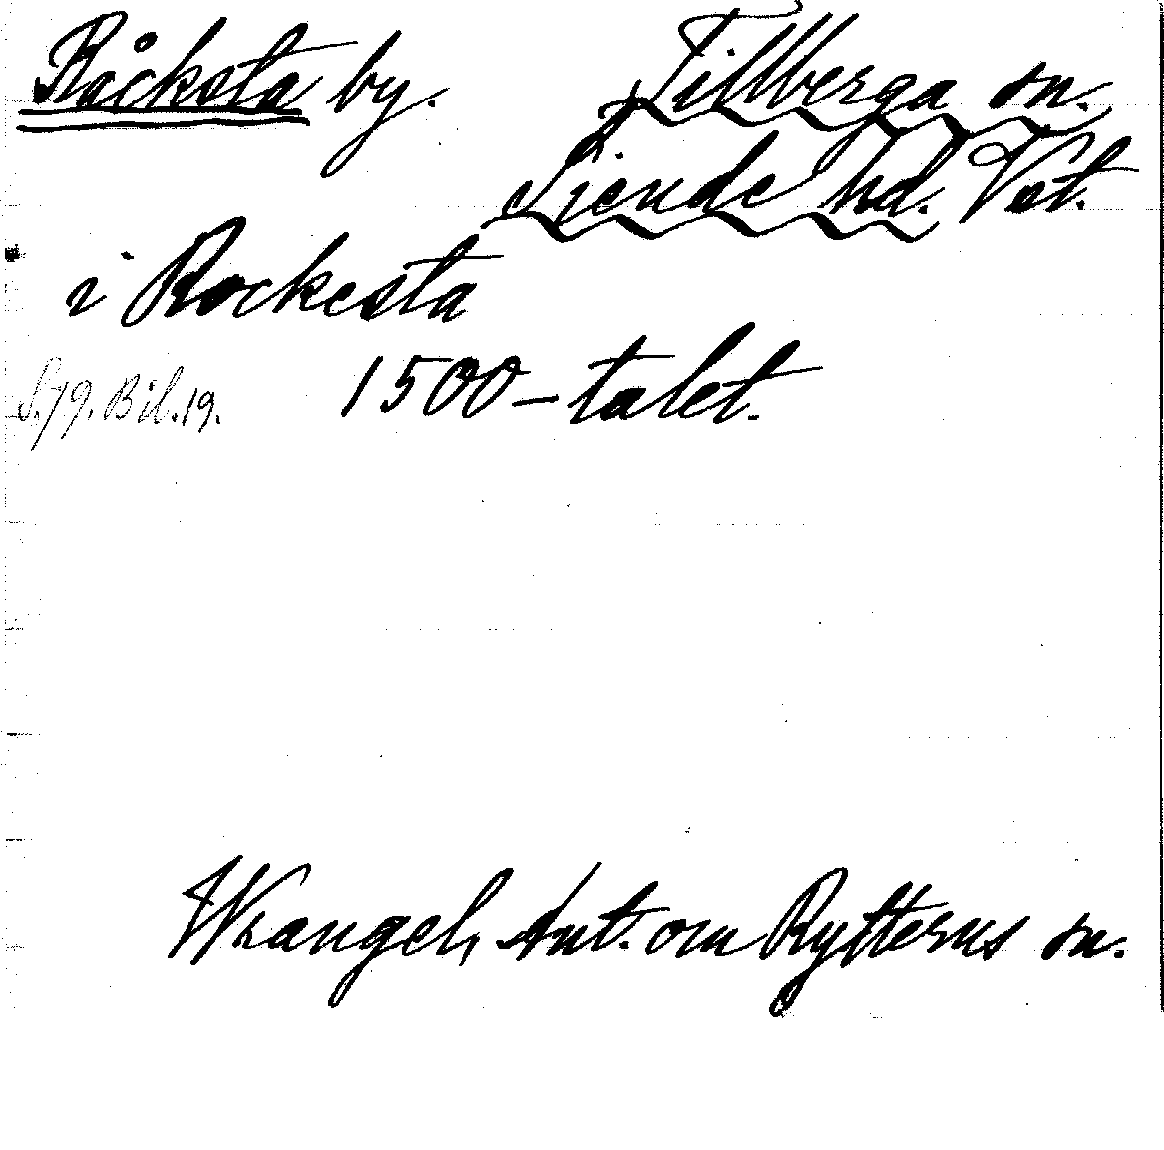 Råcksta by. Tillberga sn.
Siende hd. Vst.
i Rockesta
S. 79. Bil. 19. 1500-talet.
Wrangel, Ant. om Rytterns sn.